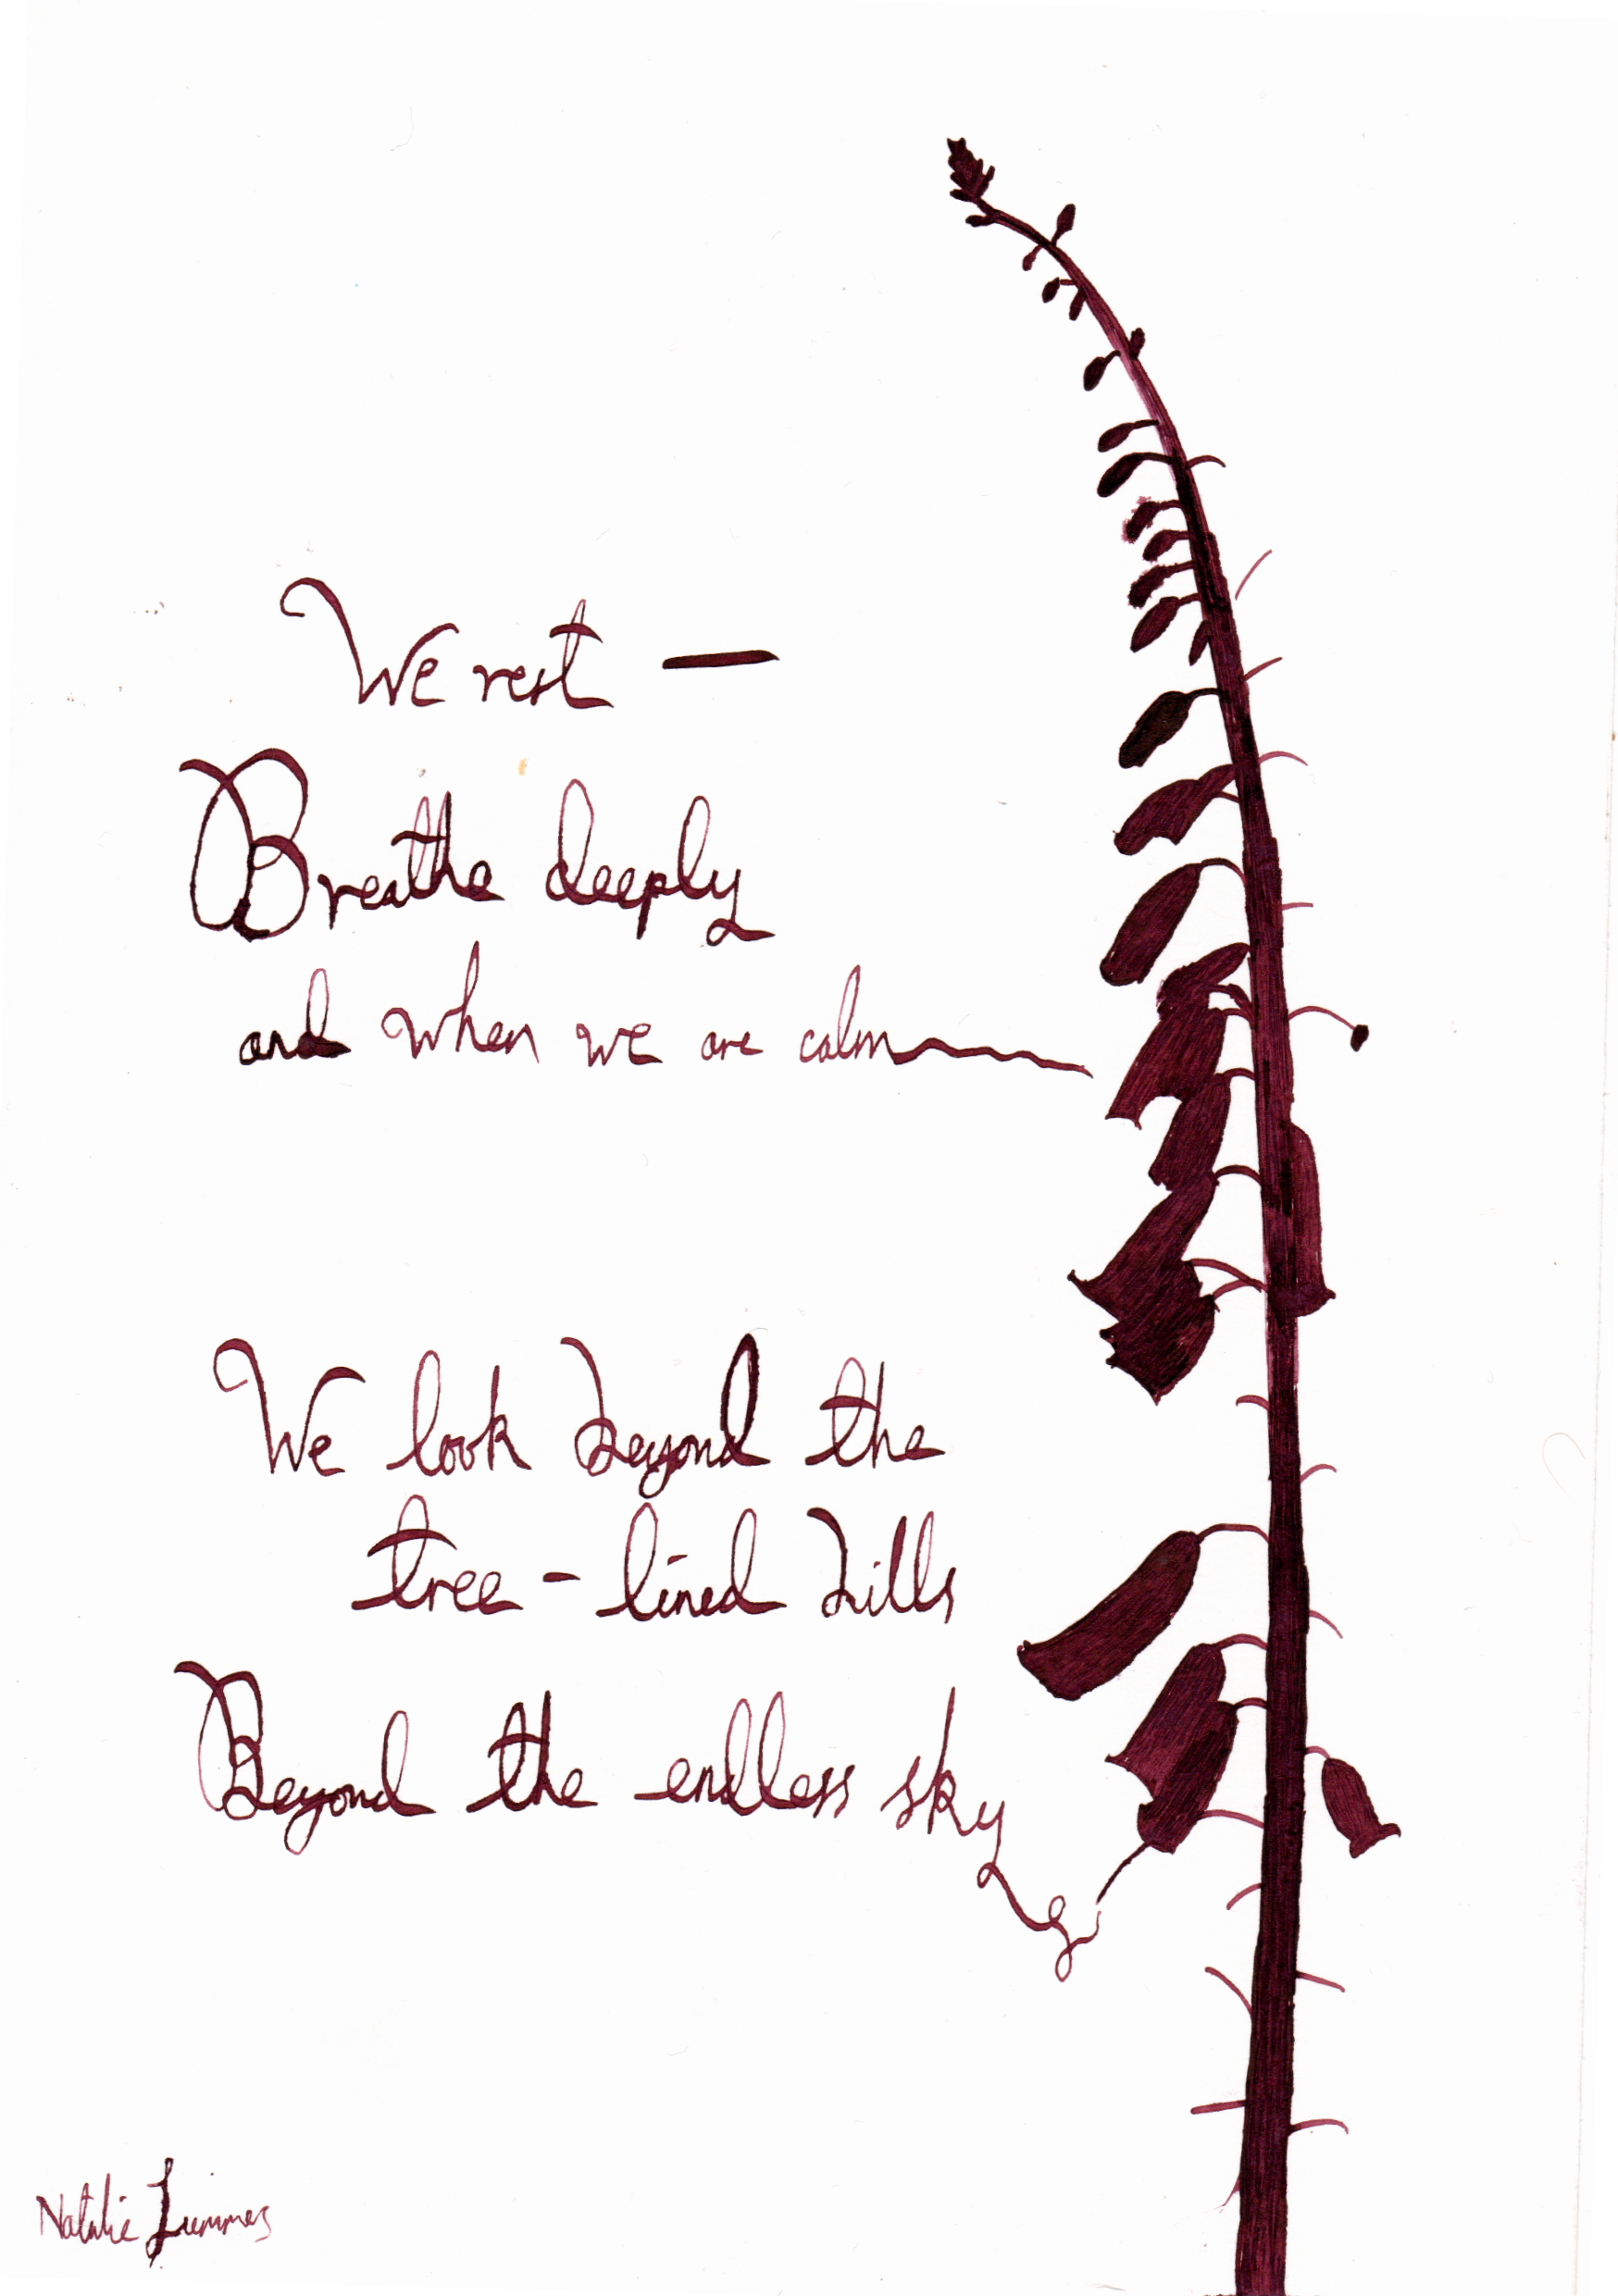 We rest —
Breathe deeply
and when we are calm
We look beyond the
tree-lined hills
Beyond the endless sky
Natalie